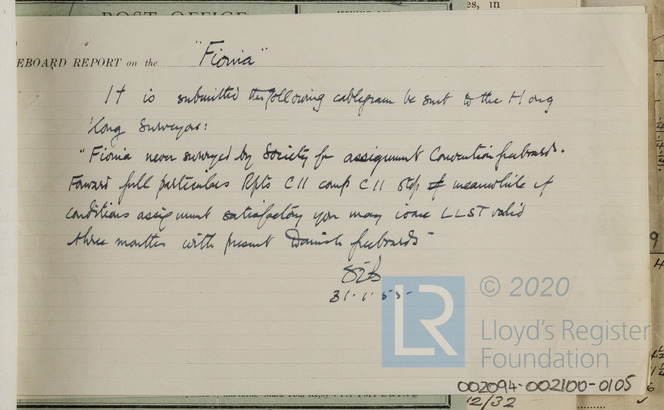 POST OFFICE
es, in
EBOARD REPORT on the "Fionia"
It is submitted the following cablegram be sent to the Hong
Kong Surveyors:
"Fionia never surveyed by Society for assignment Convention freeboards.
Forward full particulars Rpts C11 comp C11 Stop If meanwhile if
conditions assignment satisfactory you may issue LLST valid
three months with present Danish freeboards"
31.1.55
LR
© 2020
Lloyd's Register
Foundation
002094-002100-0105
12/32